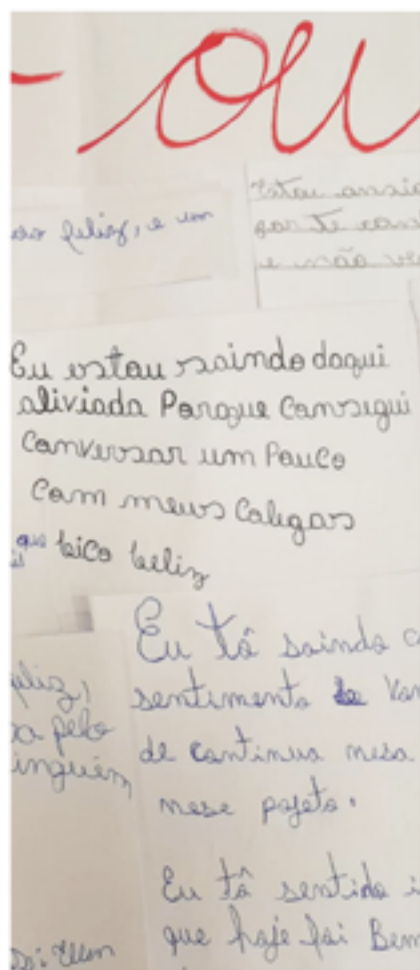 - ou
feliz, e um
Estou ansi
e não ve
Eu estou saindo daqui
aliviada Porque Consegui
Conversar um Pouco
Com meus Colegas
que fico feliz
eliz,
pelo
inguém
Eu tô saindo c
sentimento de Von
de continua nesa
nese pojeto.
Eu tô sentido i
que hoje foi Bem